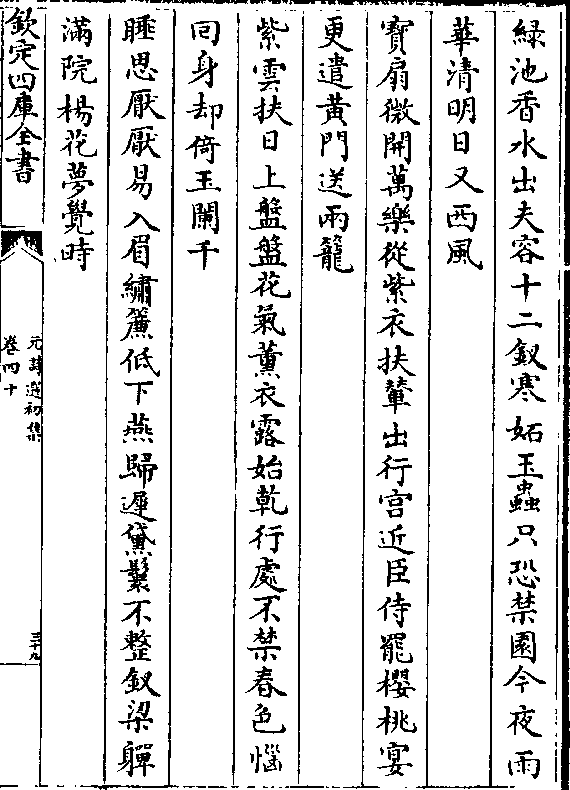 緑池香水出夫容十二釵寒妬玉蟲只恐禁園今夜雨
華清明日又西風
寶扇微開萬樂從紫衣扶輦出行宫近臣侍罷櫻桃宴
更遣黄門送兩籠
紫雲扶日上盤盤花氣薫衣露始乾行處不禁春色惱
囘身却倚玉闌干
睡思厭厭易入眉繡簾低下燕歸遲黛鬟不整釵梁嚲
滿院楊花夢覺時
欽定四庫全書
元詩選初集
卷四十
三十九